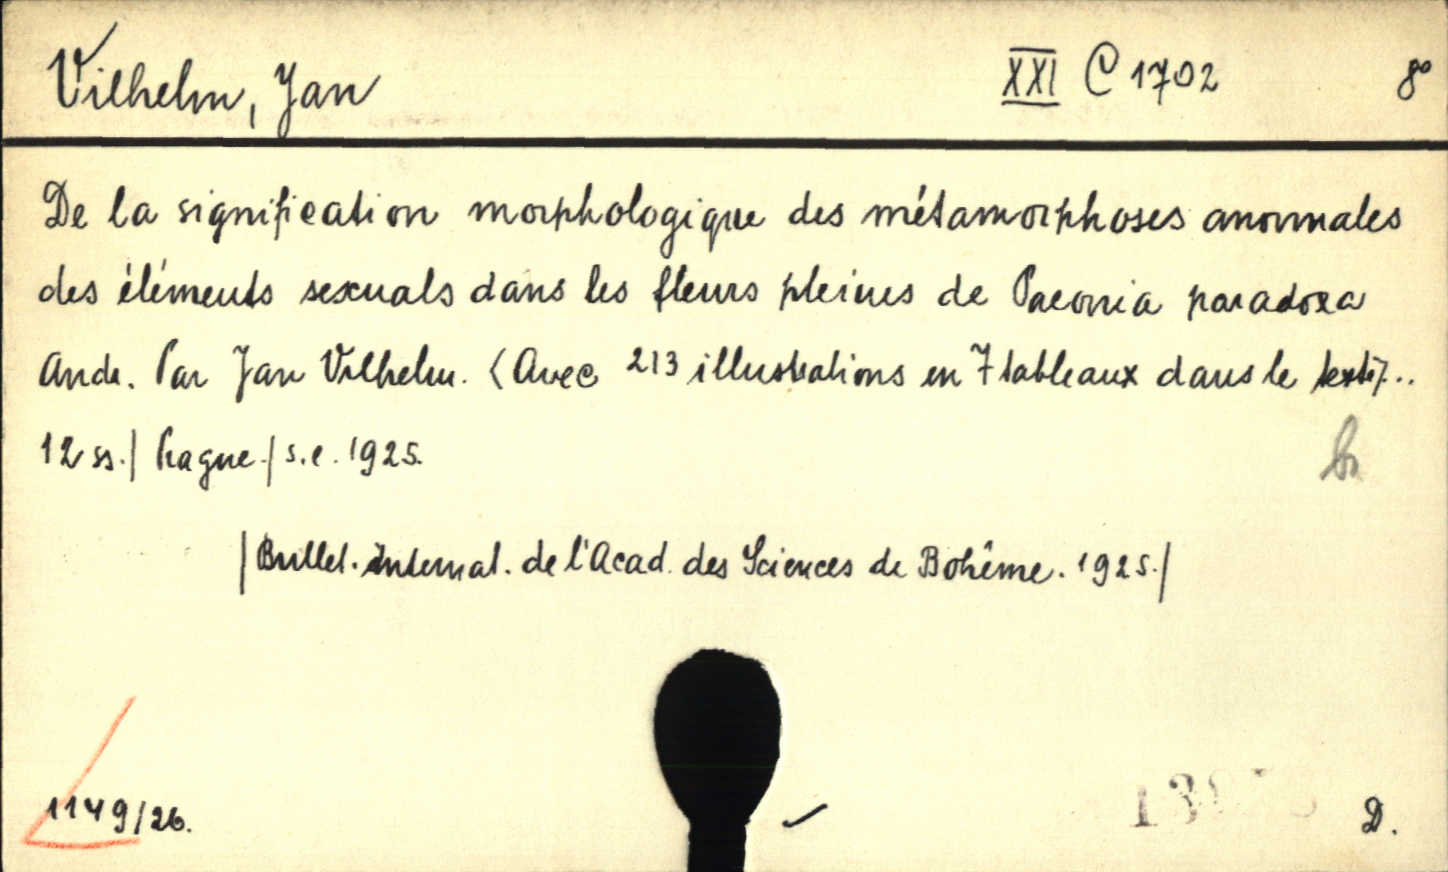 Vilhelm, Jan XXI C 1702 8°
De la signification morphologique des métamorphoses anormales
des éléments sexuals dans les fleurs pleines de Paeonia paradoxa
Andr. Par Jan Vilhelm. (Avec 213 illustrations en 7 tableaux dans le texte)..
12 ss. | Prague. | s.e. 1925.
| Bullet. internat. de l'Acad. des Sciences de Bohême. 1925. |
1149/26.
D.